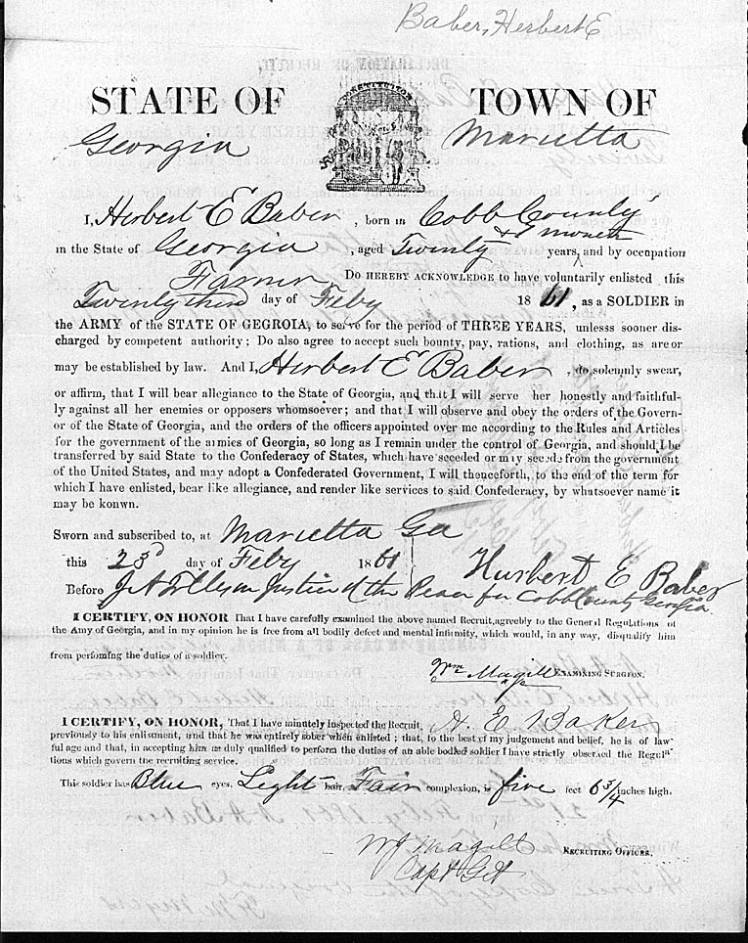 Baber, Herbert E
STATE OF TOWN OF
Georgia Marietta
CONSTITUTION
I, Herbert E Baber, born in Cobb County
& 1 month
in the State of Georgia, aged Twenty years, and by occupation
Farmer Do HEREBY ACKNOWLEDGE to have voluntarily enlisted this
Twenty third day of Feby 1861, as a SOLDIER in
the ARMY of the STATE OF GEGROIA, to serve for the period of THREE YEARS, unlesss sooner dis-
charged by competent authority; Do also agree to accept such bounty, pay, rations, and clothing, as are or
may be established by law. And I, Herbert E Baber, do solemnly swear,
or affirm, that I will bear allegiance to the State of Georgia, and that I will serve her honestly and faithful-
ly against all her enemies or opposers whomsoever; and that I will observe and obey the orders of the Govern-
or of the State of Georgia, and the orders of the officers appointed over me according to the Rules and Articles
for the government of the armies of Georgia, so long as I remain under the control of Georgia, and should I be
transferred by said State to the Confederacy of States, which have seceded or may secede from the government
of the United States, and may adopt a Confederated Government, I will thenceforth, to the end of the term for
which I have enlisted, bear like allegiance, and render like services to said Confederacy, by whatsoever name it
may be konwn.
Sworn and subscribed to, at Marietta Ga
this 23d day of Feby 1861 Hurbert E Baber
Before Justice of the Peace for Cobb County Georgia.
I CERTIFY, ON HONOR That I have carefully examined the above named Recruit, agreebly to the General Regulations of
the Amy of Georgia, and in my opinion he is free from all bodily defect and mental infimity, which would, in any way, disqualify him
from perfoming the duties of a soldier.
Wm Magill EXAMINING SURGEON.
I CERTIFY, ON HONOR, That I have minutely inspected the Recruit, H. E Baker
previously to his enlisment, and that he was entirely sober when enlisted; that, to the best of my judgement and belief, he is of law-
ful age and that, in accepting him as duly qualified to perform the duties of an able bodied soldier I have strictly observed the Regula-
tions which govern the recruiting service.
This soldier has Blue eyes, Light hair, Fair complexion, is five feet 6 3/4 inches high.
W J Magill RECRUITING OFFICER.
Capt G A